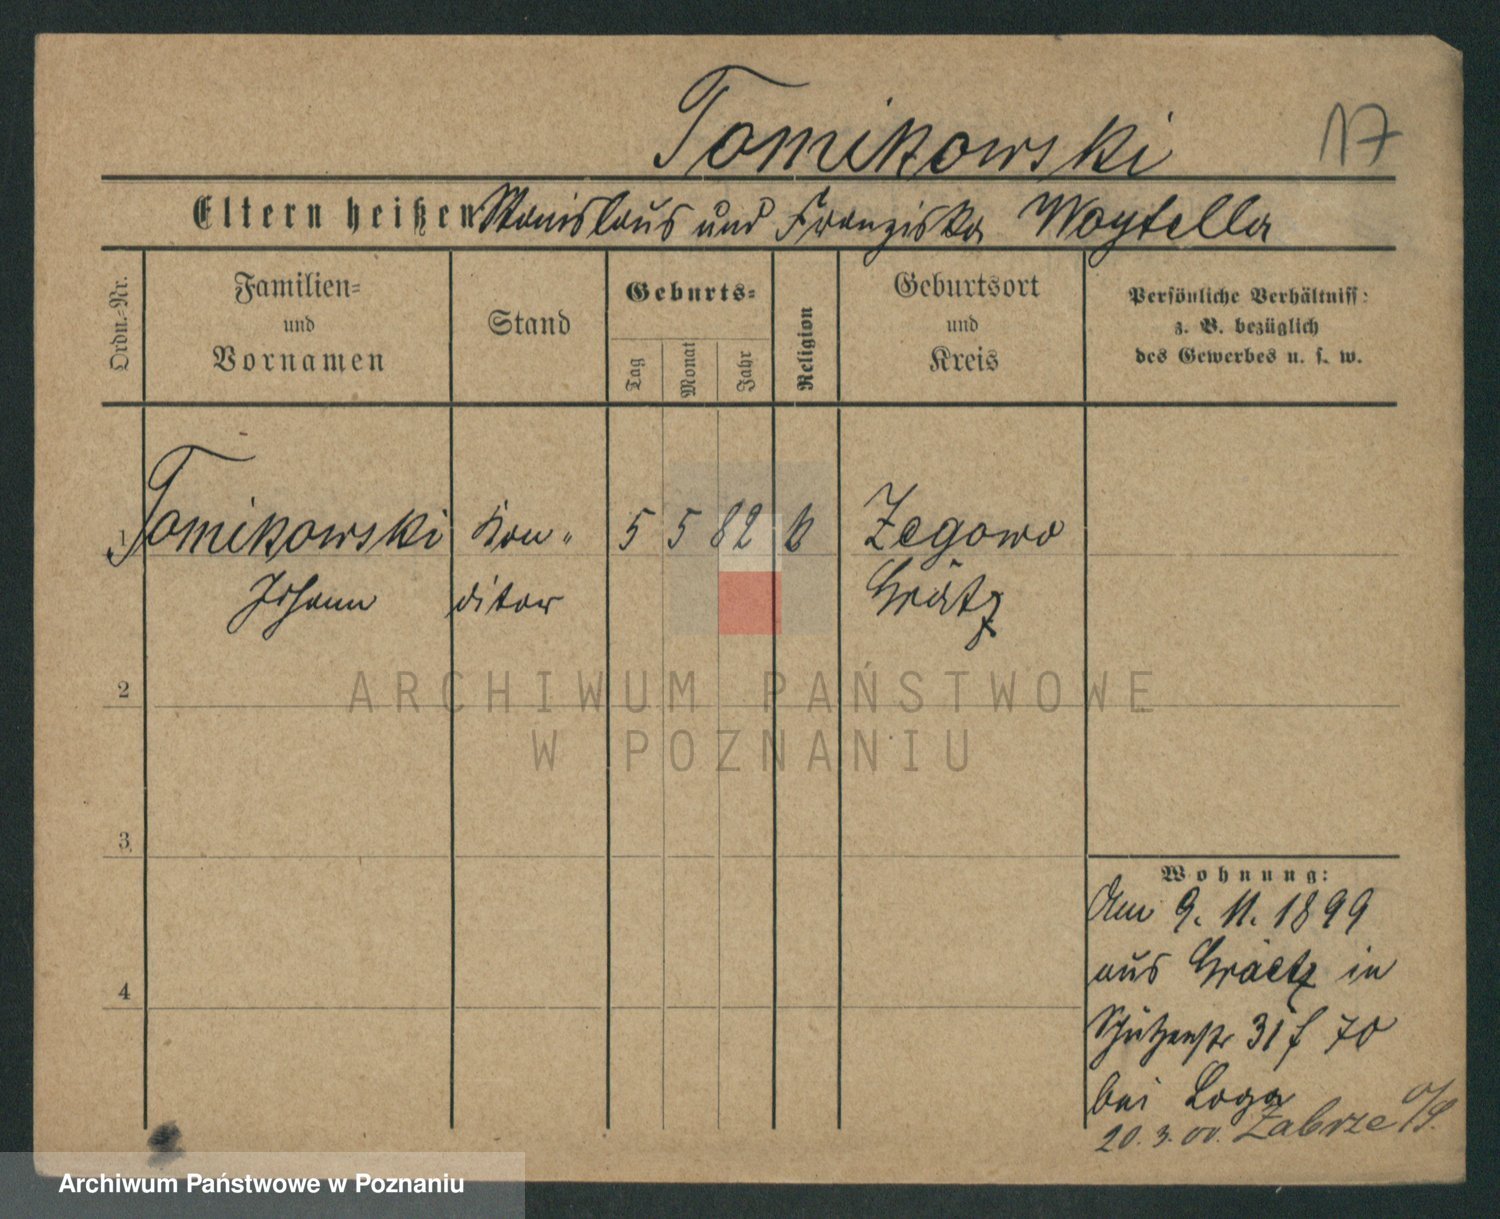 Tomikowski 17
Eltern heißen Stanislaus und Franziska Woytella
Ordn.-Nr.
Familien-
und
Vornamen
Stand
Geburts-
Tag
Monat
Jahr
Religion
Geburtsort
und
Kreis
Persönliche Verhältniss:
z. B. bezüglich
des Gewerbes u. s. w.
1 Tomikowski Kon- 5 5 82 k Zegowo
Johann ditor Grätz
ARCHIWUM PAŃSTWOWE
W POZNANIU
2
3
4
Wohnung:
Am 9. 11. 1899
aus Graetz in
Schützenstr 31 f 70
bei Loga
20. 3. 00. Zabrze O/S.
Archiwum Państwowe w Poznaniu